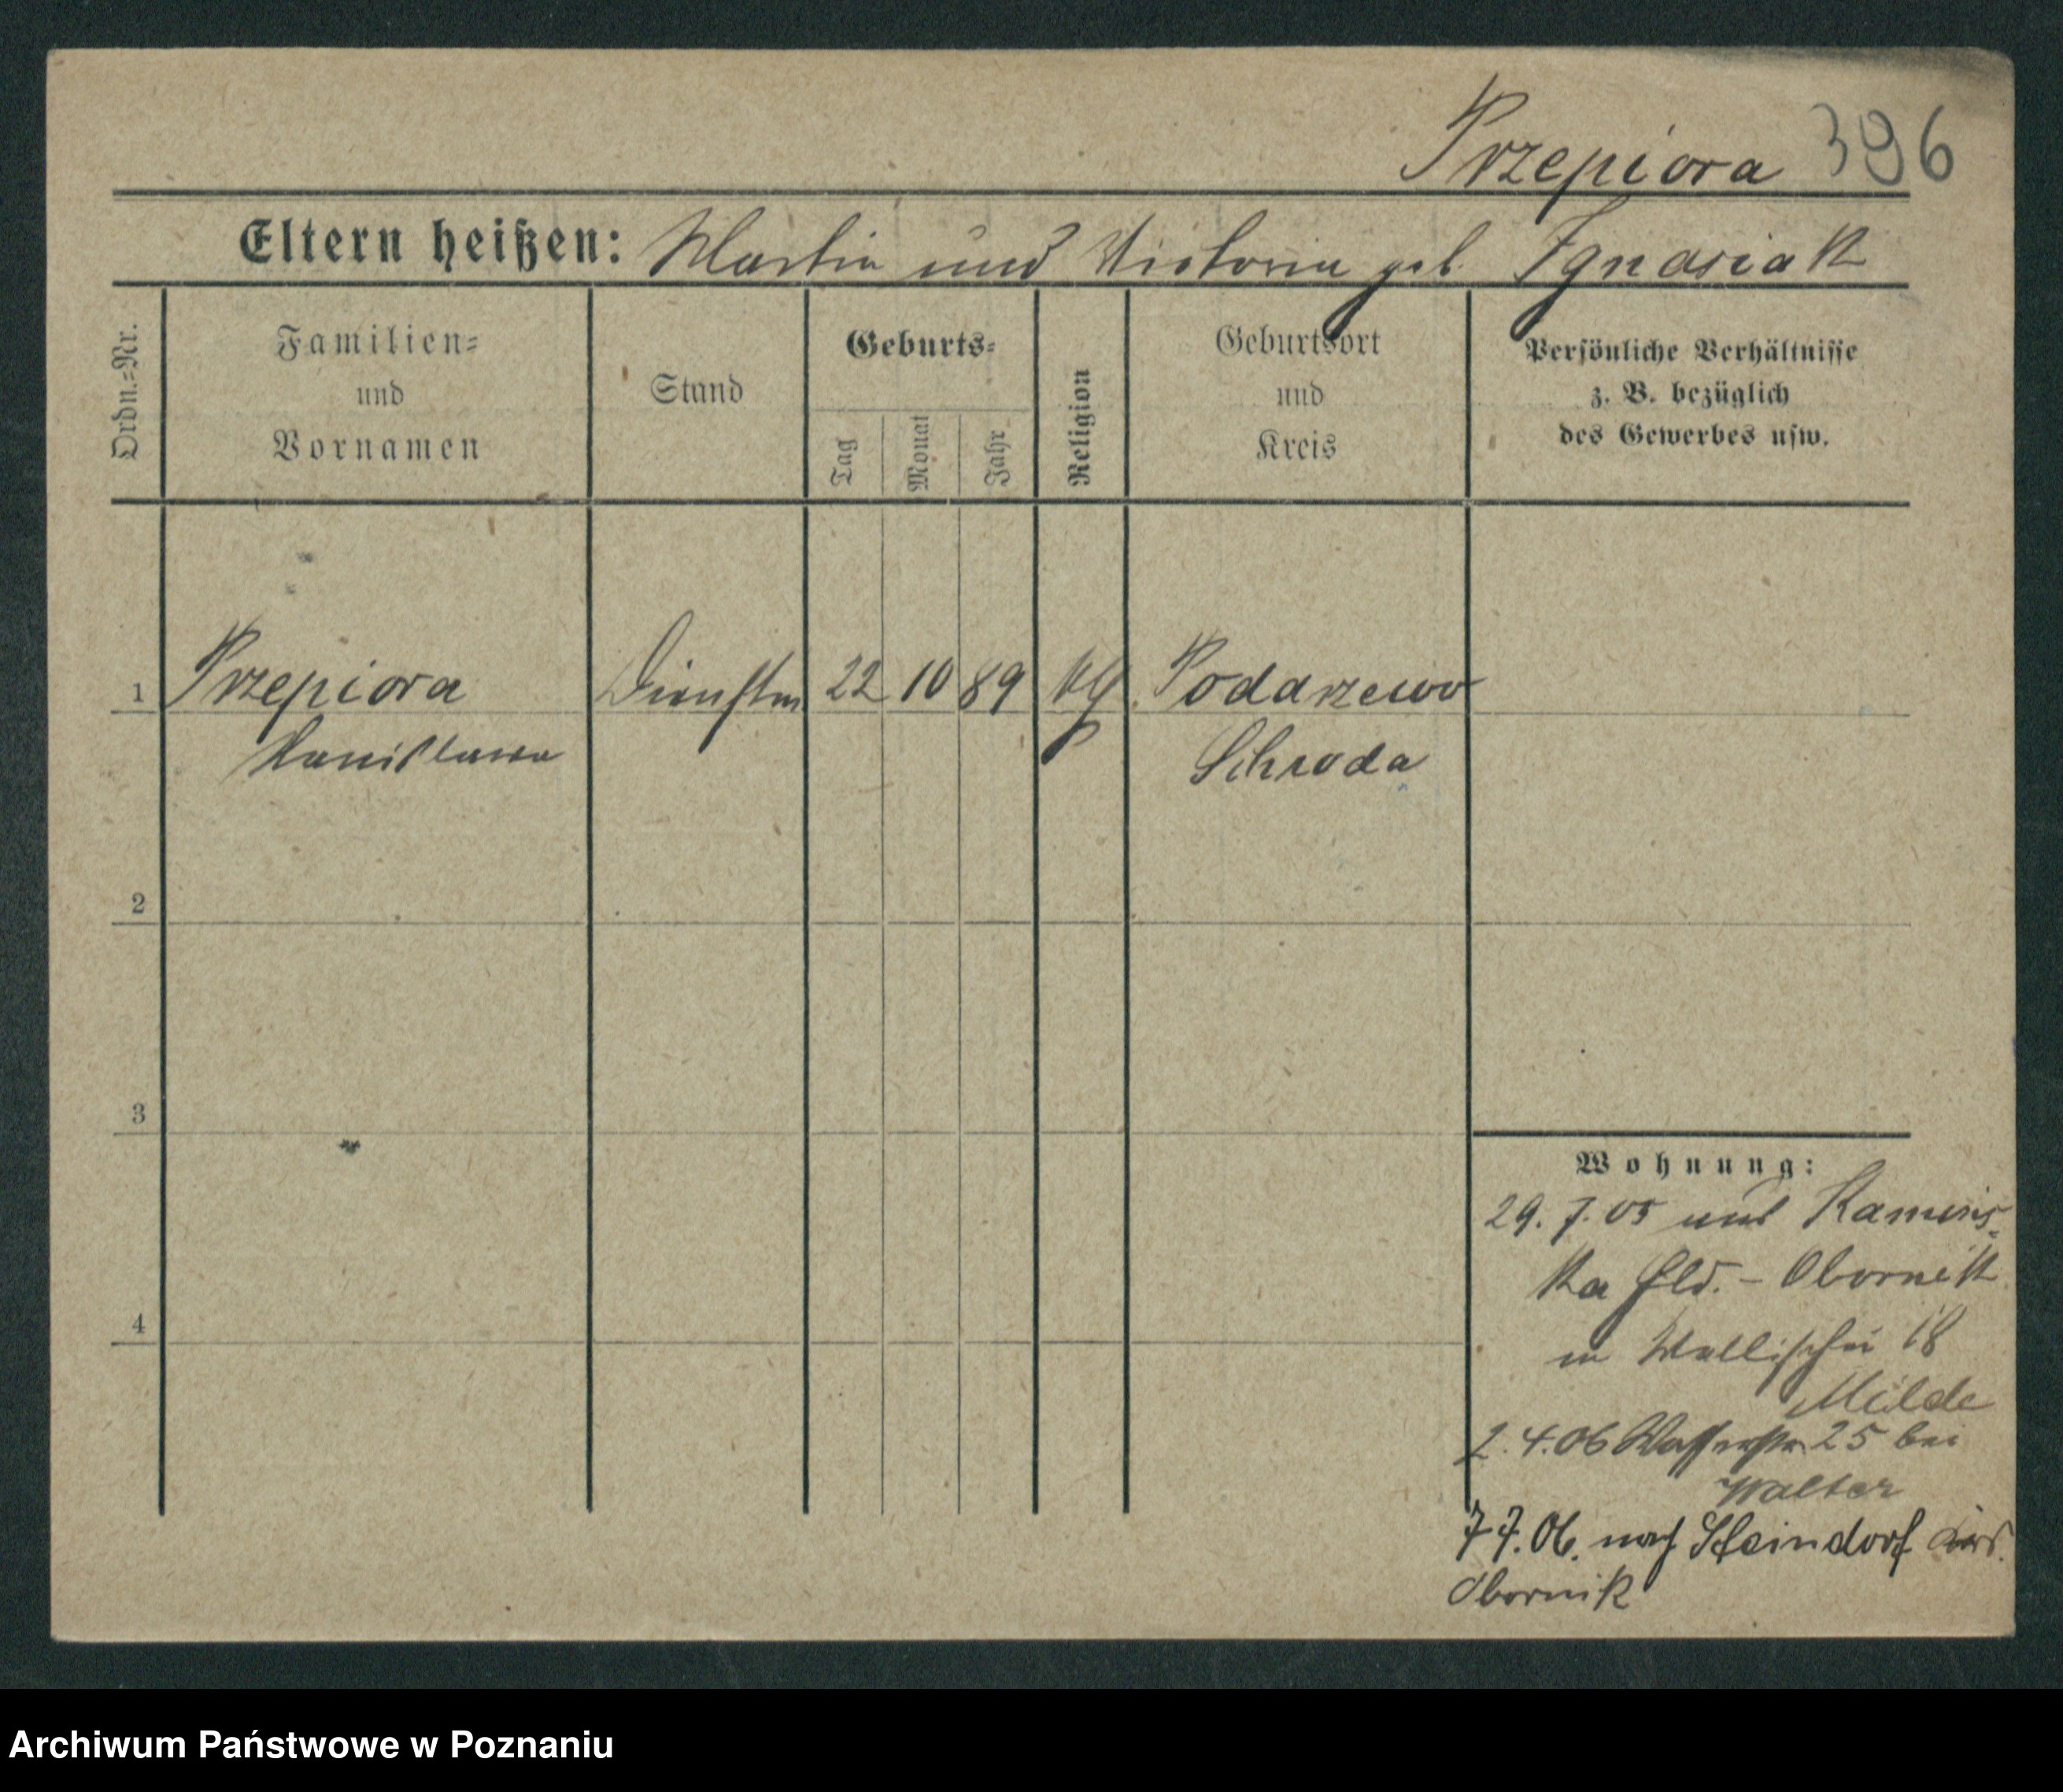 Przepiora 396
Eltern heißen: Martin und Victoria geb. Ignasiak
Ordn.=Nr.
Familien=
und
Vornamen
Stand
Geburts=
Tag
Monat
Jahr
Religion
Geburtsort
und
Kreis
Persönliche Verhältnisse
z. B. bezüglich
des Gewerbes usw.
1 Przepiora Dienstm 22 10 89 kg Podarzewo
Stanislawa Schroda
2
3
4
Wohnung:
29. 7. 05 aus Kamins=
ka Hld. - Obornik
in Wallischei 18
Milde
2. 4. 06 Wasserstr. 25 bei
Walter
7 7. 06. nach Steindorf
Obornik
Archiwum Państwowe w Poznaniu